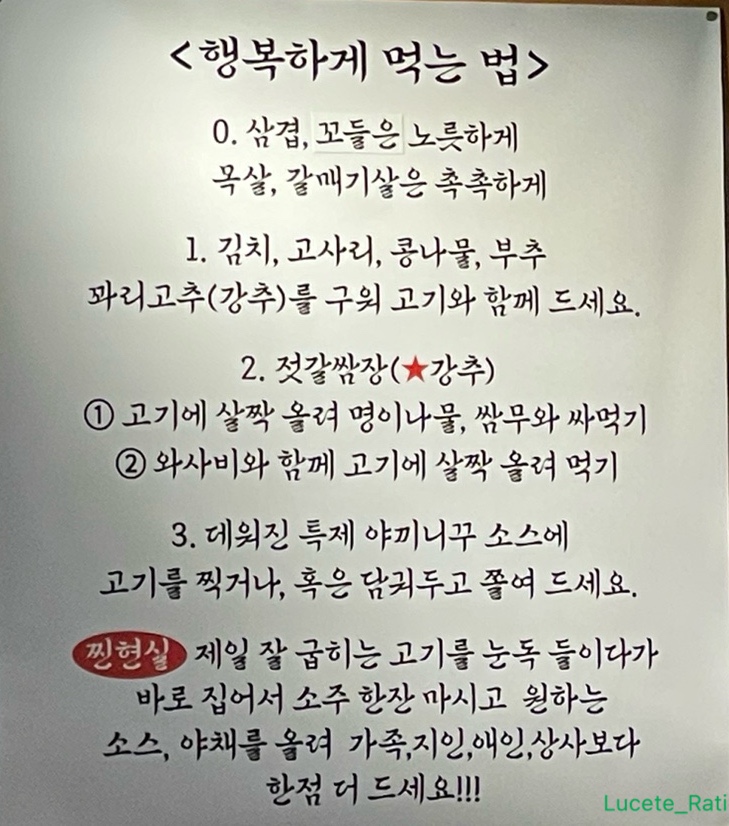 <행복하게 먹는 법>
0. 삼겹, 꼬들은 노릇하게
목살, 갈매기살은 촉촉하게
1. 김치, 고사리, 콩나물, 부추
꽈리고추(강추)를 구워 고기와 함께 드세요.
2. 젓갈쌈장(★강추)
① 고기에 살짝 올려 명이나물, 쌈무와 싸먹기
② 와사비와 함께 고기에 살짝 올려 먹기
3. 데워진 특제 야끼니꾸 소스에
고기를 찍거나, 혹은 담궈두고 쫄여 드세요.
찐현실 제일 잘 굽히는 고기를 눈독 들이다가
바로 집어서 소주 한잔 마시고 원하는
소스, 야채를 올려 가족,지인,애인,상사보다
한점 더 드세요!!!
Lucete_Rati